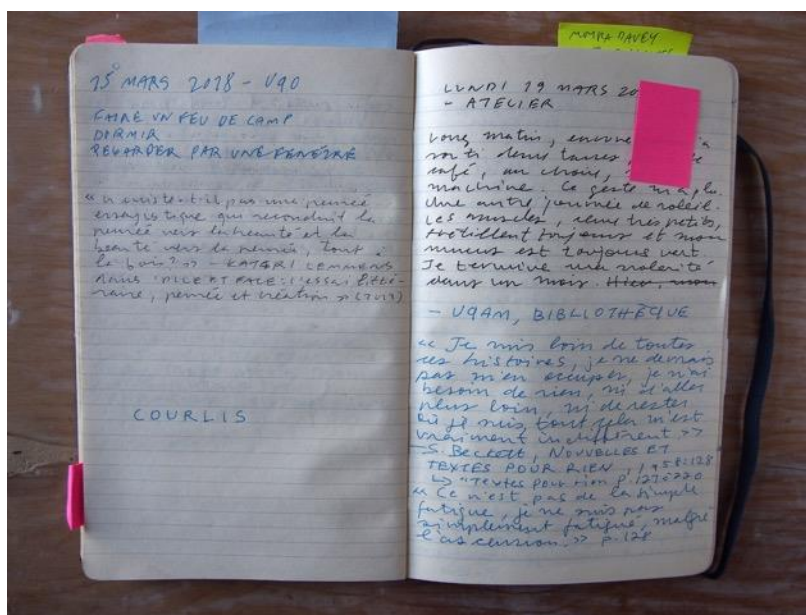 MOYRA DAVEY
15 MARS 2018 - UQO
FAIRE UN FEU DE CAMP
DORMIR
REGARDER PAR UNE FENÊTRE
« n'existe-t-il pas une pensée
essayistique qui reconduit la
pensée vers la beauté et la
beauté vers la pensée, tout à
la fois? » - KATERI LEMMENS
dans "PILE ET FACE : l'essai litté-
raire, pensée et création » (2013)
COURLIS
LUNDI 19 MARS 20
- ATELIER
Long matin, encore
sorti deux tasses,
café, au choix,
machine. Ce geste m'a plu.
Une autre journée de soleil.
Les muscles, deux très petits,
toujours et mon
mucus est toujours vert.
Je termine ma scolarité
dans un mois. Hier, mon
- UQAM, BIBLIOTHÈQUE
« Je suis loin de toutes
ces histoires, je ne devrais
pas m'en occuper, je n'ai
besoin de rien, ni d'aller
plus loin, ni de rester
où je suis, tout cela m'est
vraiment indifférent. »
- S. Beckett, NOUVELLES ET
TEXTES POUR RIEN, 1958:128
↳ "Textes pour rien p.127@220
« Ce n'est pas de la simple
fatigue, je ne suis pas
simplement fatigué, malgré
l'ascension. » p.128